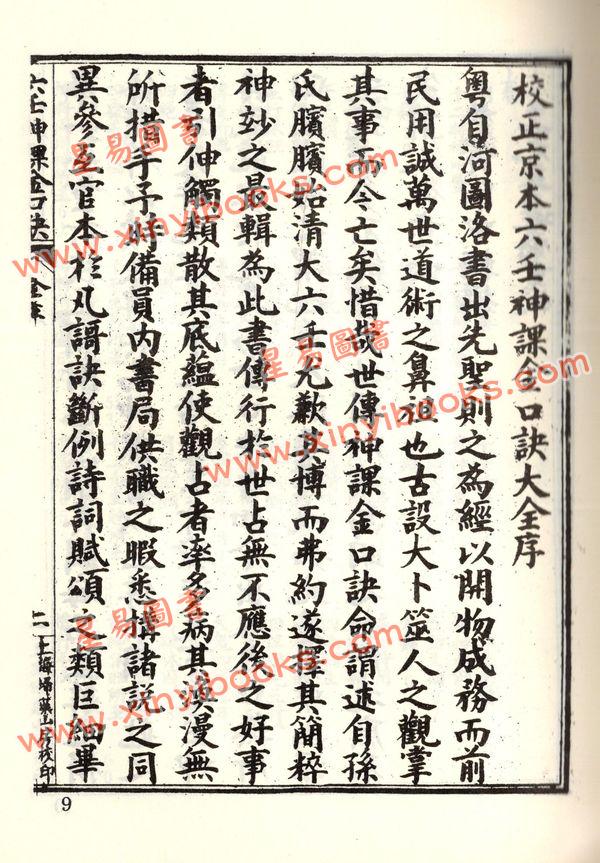 校正京本六壬神課金口訣大全序
粵自河圖洛書出先聖則之為經以開物成務而前
民用誠萬世道術之鼻祖也古設大卜筮人之觀掌
其事而今亡矣惜哉世傳神課金口訣命謂述自孫
氏臏臏始清大六壬尤歉其博而弗約遂擇其簡粹
神妙之最輯為此書傳行於世占無不應後之好事
者引伸觸類散其底蘊使觀占者率多病其漫無
所措手予時備員內書局供職之暇悉摶諸說之同
異參互官本於凡語訣斷例詩詞賦頌之類巨細畢
六壬神課金口訣
二
上海埽葉山房校印
9
星易圖書
www.xinyibooks.com
星易圖書
www.xinyibooks.com
星易圖書
www.xinyibooks.com